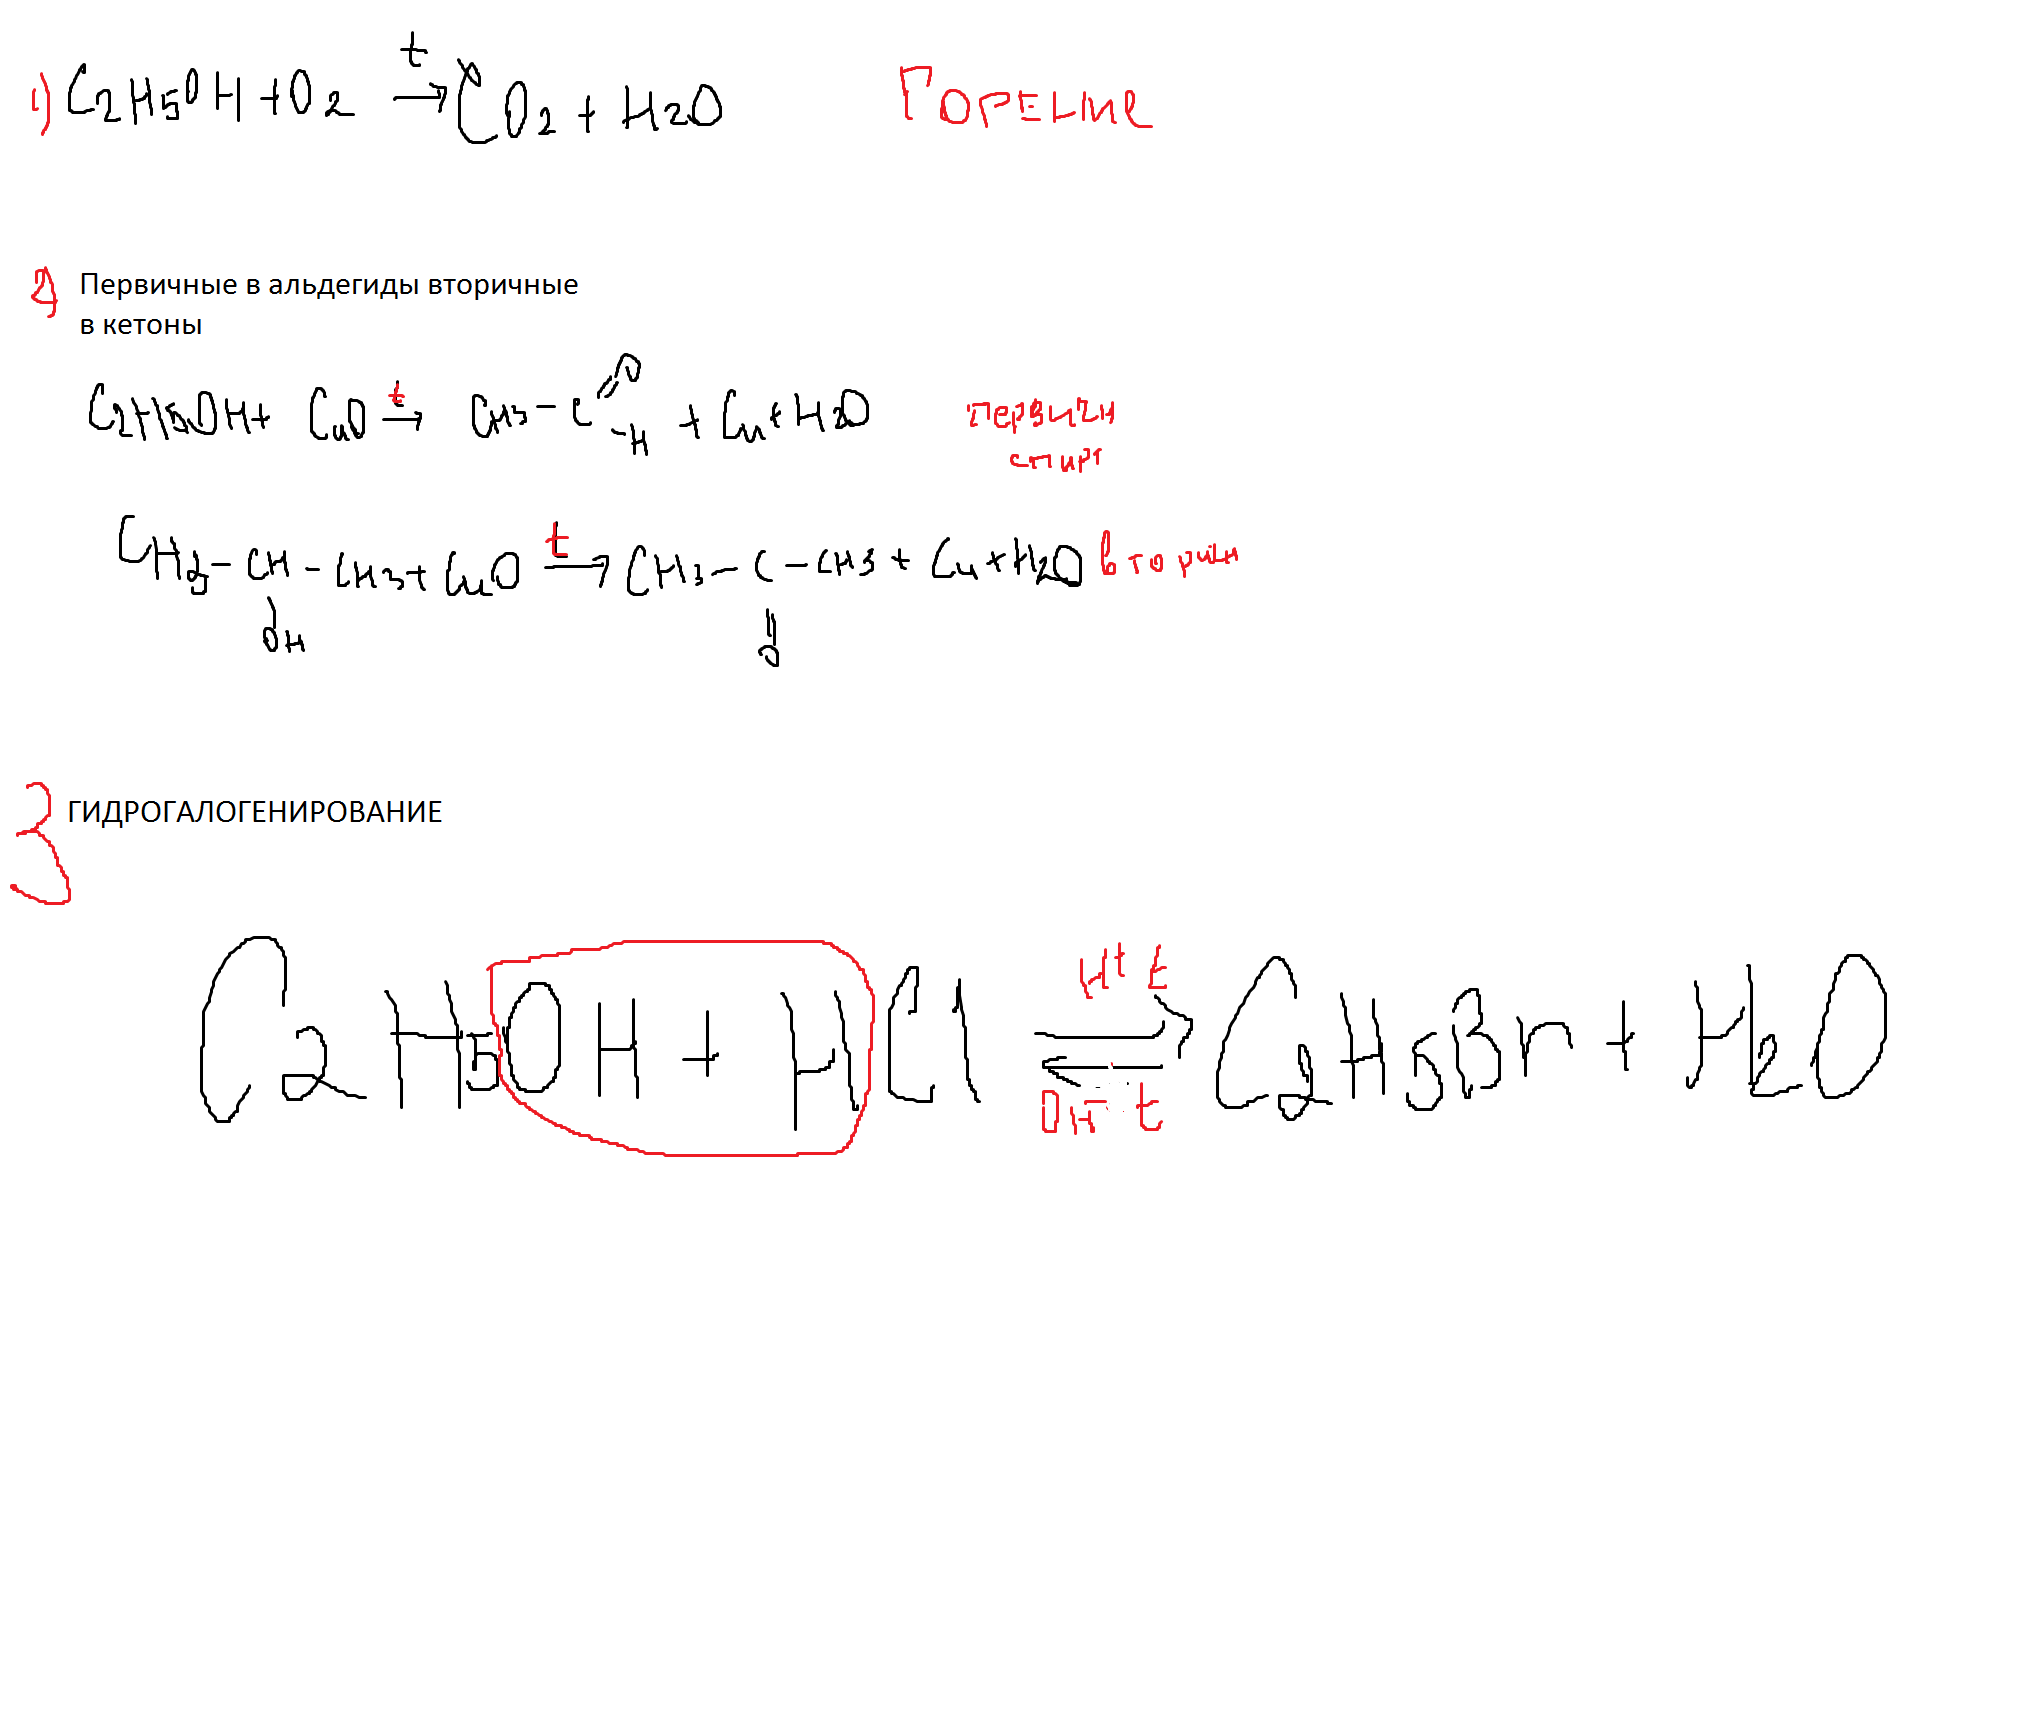 1) C2H5OH + O2 t → CO2 + H2O ГОРЕНИЕ
2) Первичные в альдегиды вторичные
в кетоны
C2H5OH + CuO t → CH3 - C =O -H + Cu + H2O первичн
спирт
CH3 - CH - CH3 + CuO t → CH3 - C - CH3 + Cu + H2O вторичн
OH O
3 ГИДРОГАЛОГЕНИРОВАНИЕ
H+ t
C2H5OH + HCl ⇄ C2H5Br + H2O
OH- t